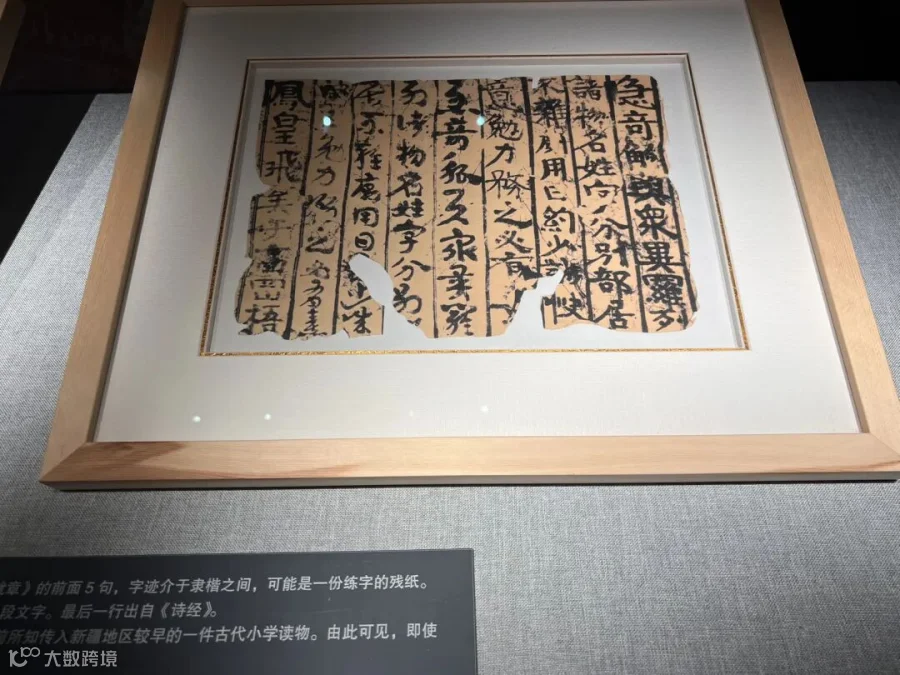 急奇觚與衆異羅列
諸物名姓字分別部居
不雜厠用日約少誠快
意勉力務之必有
急奇觚與衆異羅
列諸物名姓字分別
居不雜廁用日
勉力務之必有憙
鳳皇飛矣于高岡梧
章》的前面5句，字迹介于隶楷之间，可能是一份练字的残纸。
段文字。最后一行出自《诗经》。
前所知传入新疆地区较早的一件古代小学读物。由此可见，即使
大数跨境